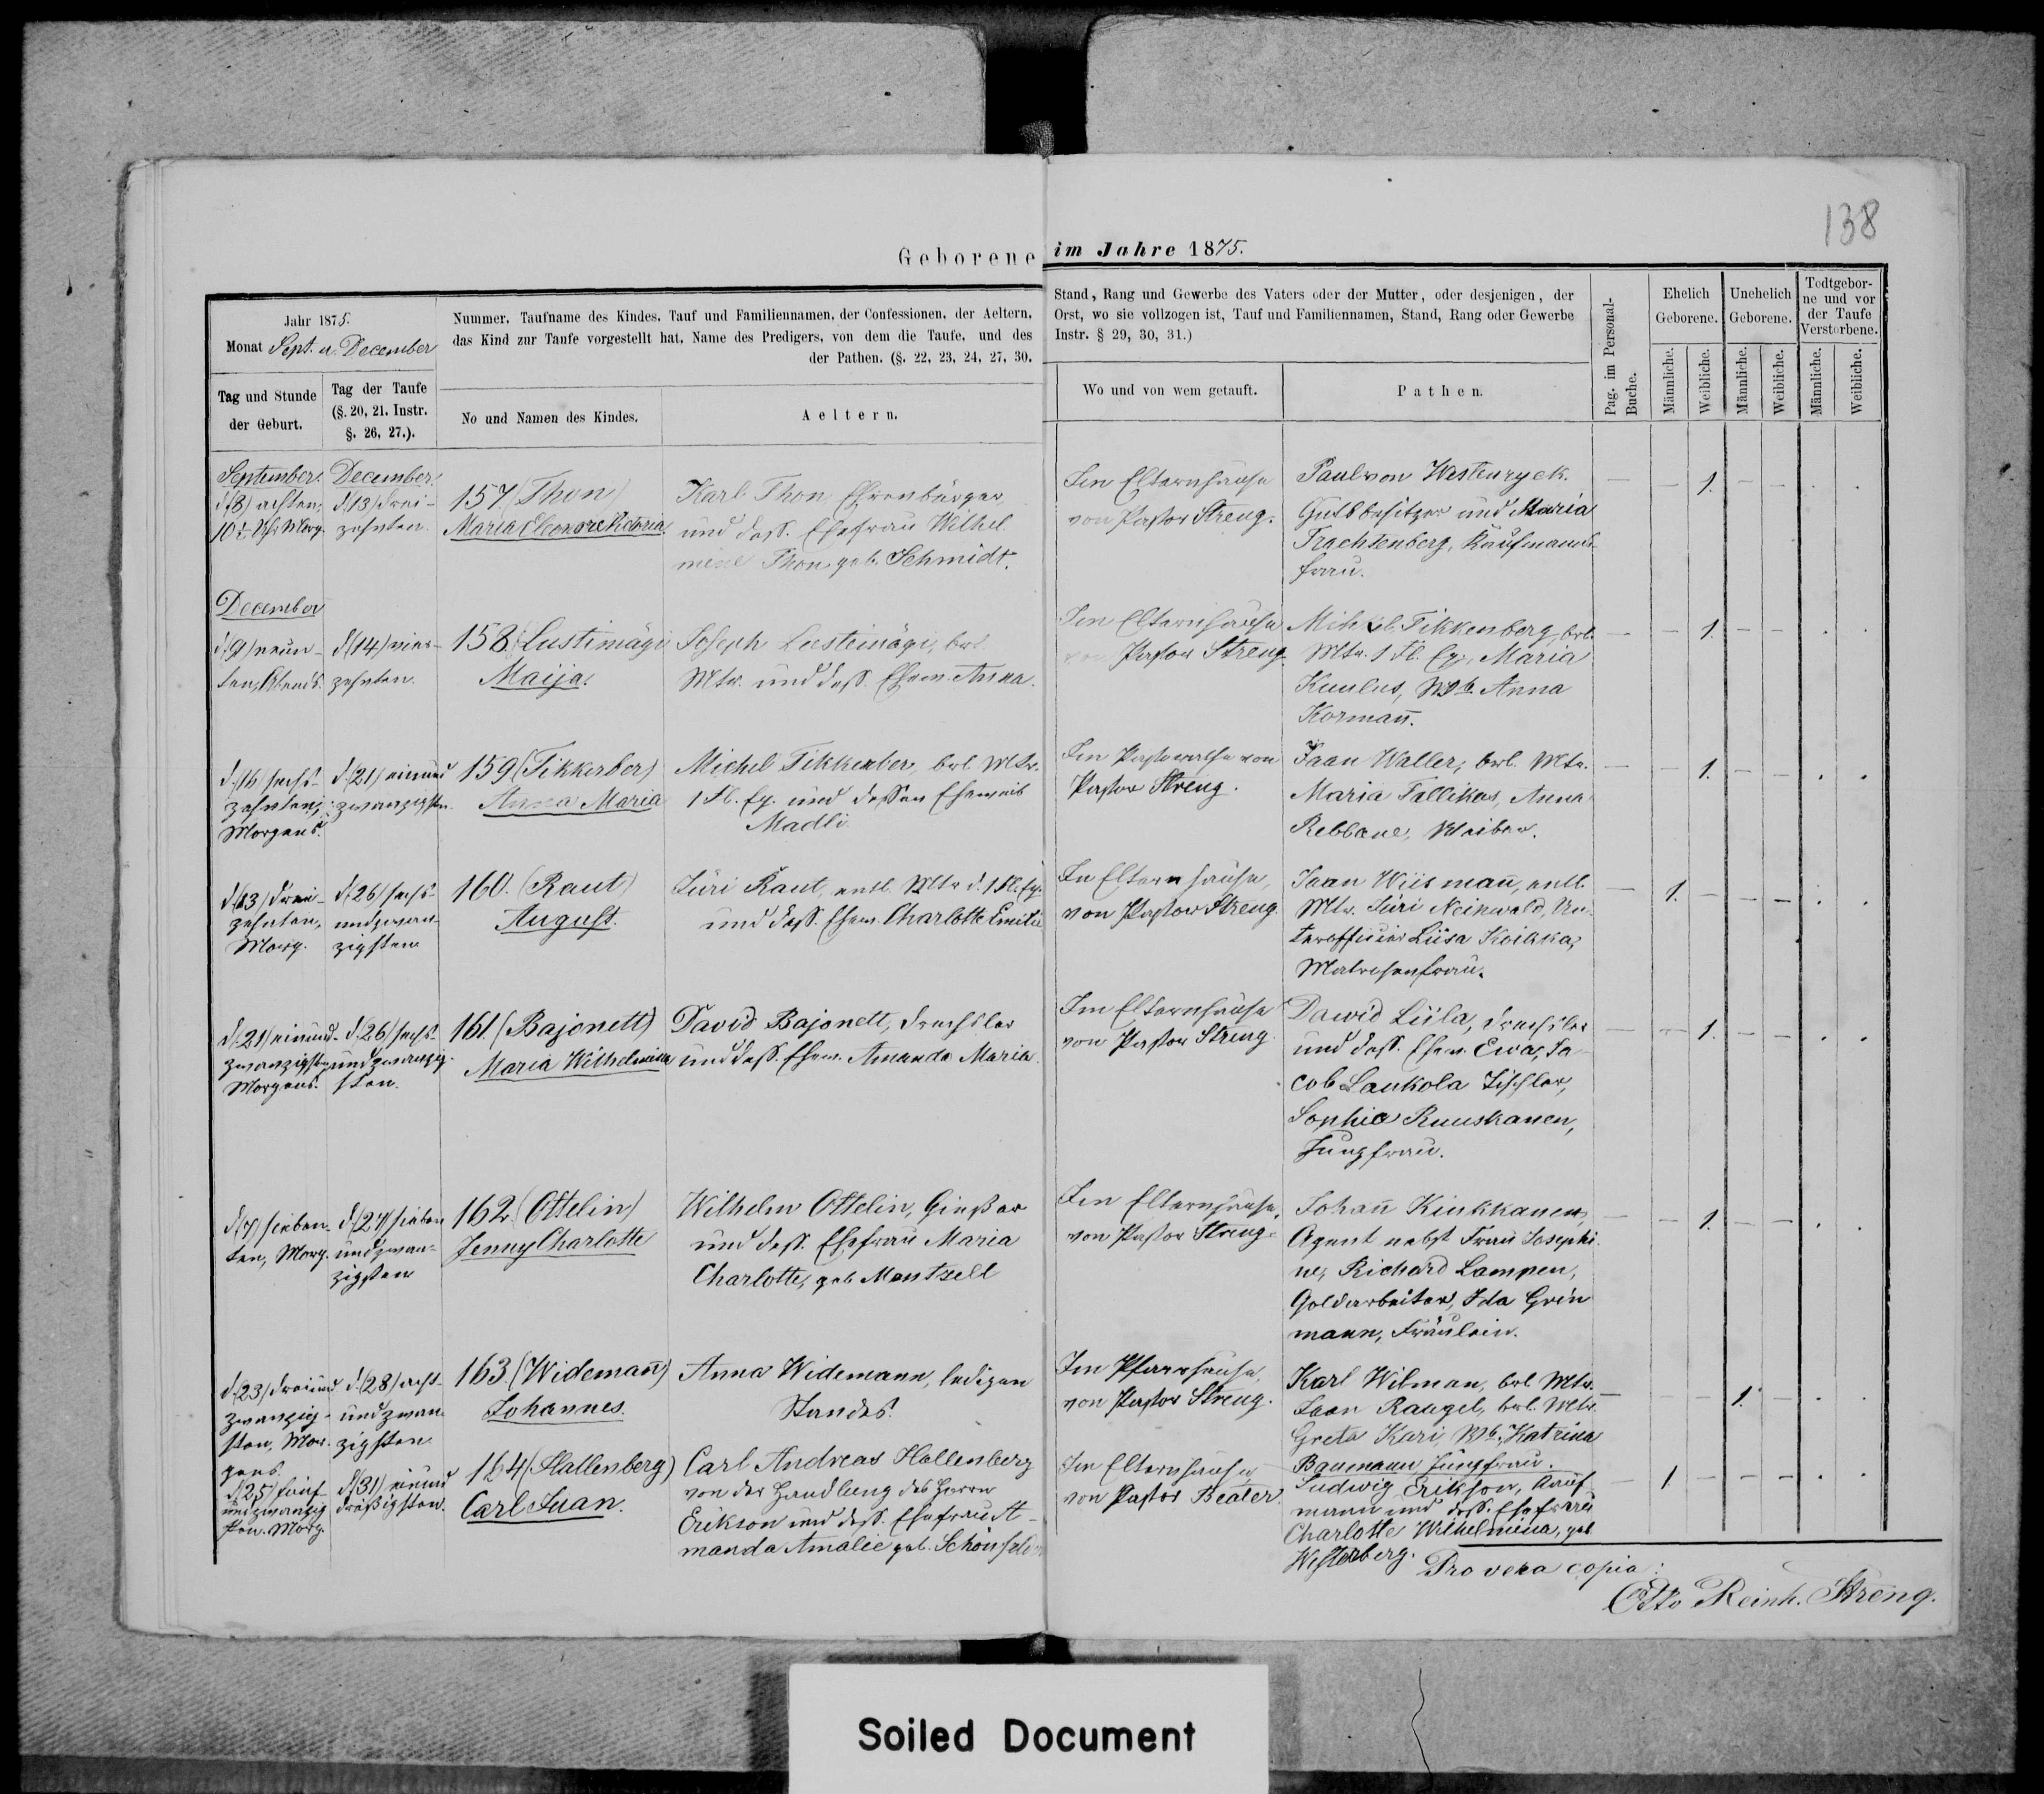 138
Geborene im Jahre 1875.
Jahr 1875.
Monat Sept. u. December
Nummer, Taufname des Kindes, Tauf und Familiennamen, der Confessionen, der Aeltern,
das Kind zur Taufe vorgestellt hat, Name des Predigers, von dem die Taufe, und des
der Pathen. (§. 22, 23, 24, 27, 30.
Stand, Rang und Gewerbe des Vaters oder der Mutter, oder desjenigen, der
Orst, wo sie vollzogen ist, Tauf und Familiennamen, Stand, Rang oder Gewerbe
Instr. § 29, 30, 31.)
Tag und Stunde
der Geburt.
Tag der Taufe
(§. 20, 21. Instr.
§. 26, 27.).
No und Namen des Kindes.
Aeltern.
Wo und von wem getauft.
Pathen.
Pag. im Personal-
Buche.
Ehelich
Geborene.
Unehelich
Geborene.
Todtgebor-
ne und vor
der Taufe
Verstorbene.
Männliche.
Weibliche.
Männliche.
Weibliche.
Männliche.
Weibliche.
September.
d (8) achten,
10½ Uhr Morg.
December.
d (13) drei-
zehnten.
157. (Thon)
Maria Eleonore Victoria.
Karl Thon Ehrenbürger,
und dess. Ehefrau Wilhel
mine Thon geb. Schmidt.
Im Elternhause
von Pastor Streng.
Paul von Westenryck
Gutsbesitzer und Maria
Trachtenberg, Kaufmanns-
frau.
— — 1. — — . .
December
d (9) neun-
ten, Abends.
d (14) vier-
zehnten.
158 (Lustimägi
Maija.
Joseph Lusteinägi, brl.
Mtr. und dess. Ehew. Anna.
Im Elternhause
von Pastor Streng.
Mihkel Tikkenberg, brl.
Mtr. 1 Fl. Eq., Maria
Kuulus, Wb. Anna
Kormañ.
— — 1. — — . .
d. (16) sechs-
zehnten,
Morgens.
d. (21) einund
zwanzigsten.
159 (Tikkerber)
Anna Maria
Michel Tikkerber, brl. Mtr.
1 Fl. Eq. und dessen Eheweib
Madli.
Im Pastorathe von
Pastor Streng.
Jaan Waller, brl. Mtr.
Maria Tallikas, Anna
Rebbane, Weiber.
— — 1. — — . .
d (13) drei-
zehnten,
Morg.
d. (26) sechs-
undzwan-
zigsten
160. (Raut)
August.
Jüri Raut, entl. Mtr. d. 1 Fl. Eq.
und dess. Ehew. Charlotte Emilie
Im Elternhause,
von Pastor Streng.
Jaan Wiismañ, entl.
Mtr. Jüri Neinwald, Un-
terofficier Liisa Koikka,
Matrosenfrau.
— 1. — — — . .
d. (21) einund-
zwanzigsten
Morgens.
d. (26) sechs-
undzwanzig-
sten.
161. (Bajonett)
Maria Wilhelmina
David Bajonett, Drechsler
und dess. Ehew. Amanda Maria.
Im Elternhause
von Pastor Streng
Dawid Liila, Drechsler
und dess. Ehew. Ewa, Ja-
cob Laukola Tischler,
Sophia Ruuskanen,
Jungfrau.
— — 1. — — . .
d (7) sieben-
ten, Morg.
d. (27) sieben
undzwan-
zigsten
162. (Ottelin)
Jenny Charlotte
Wilhelm Ottelin, Giesser
und dess. Ehefrau Maria
Charlotte, geb. Mentzell
Im Elternhause,
von Pastor Streng.
Johañ Kinkkanen,
Agent nebst Frau Josephi-
ne, Richard Lampen,
Goldarbeiter, Ida Grin
mann, Fräulein.
— — 1. — — . .
d. (23) dreiund
zwanzig-
sten, Mor-
gens.
d. (28) acht-
undzwan-
zigsten
163. (Widemañ)
Johannes.
Anna Widemann, ledigen
Standes.
Im Pfarrhause,
von Pastor Streng.
Karl Wilman, brl. Mtr.
Jaan Raugel, brl. Mtr.
Greta Kari, Wb., Katrina
Baumann Jungfrau.
— — — 1. — . .
d (25) fünf
undzwanzig
sten. Morg.
d (31) einund
dreißigsten.
164 (Hallenberg)
Carl Iuan.
Carl Andreas Hallenberg
von der Handlung des Herrn
Erikson und dess. Ehefrau A-
manda Amalie geb.
Im Elternhause,
von Pastor Beater.
Ludwig Erikson, Kauf-
mann und dess. Ehefrau
Charlotte Wilhelmina, geb
Westerberg.
— 1. — — — . .
Pro vera copia:
Otto Reinh. Streng.
Soiled Document